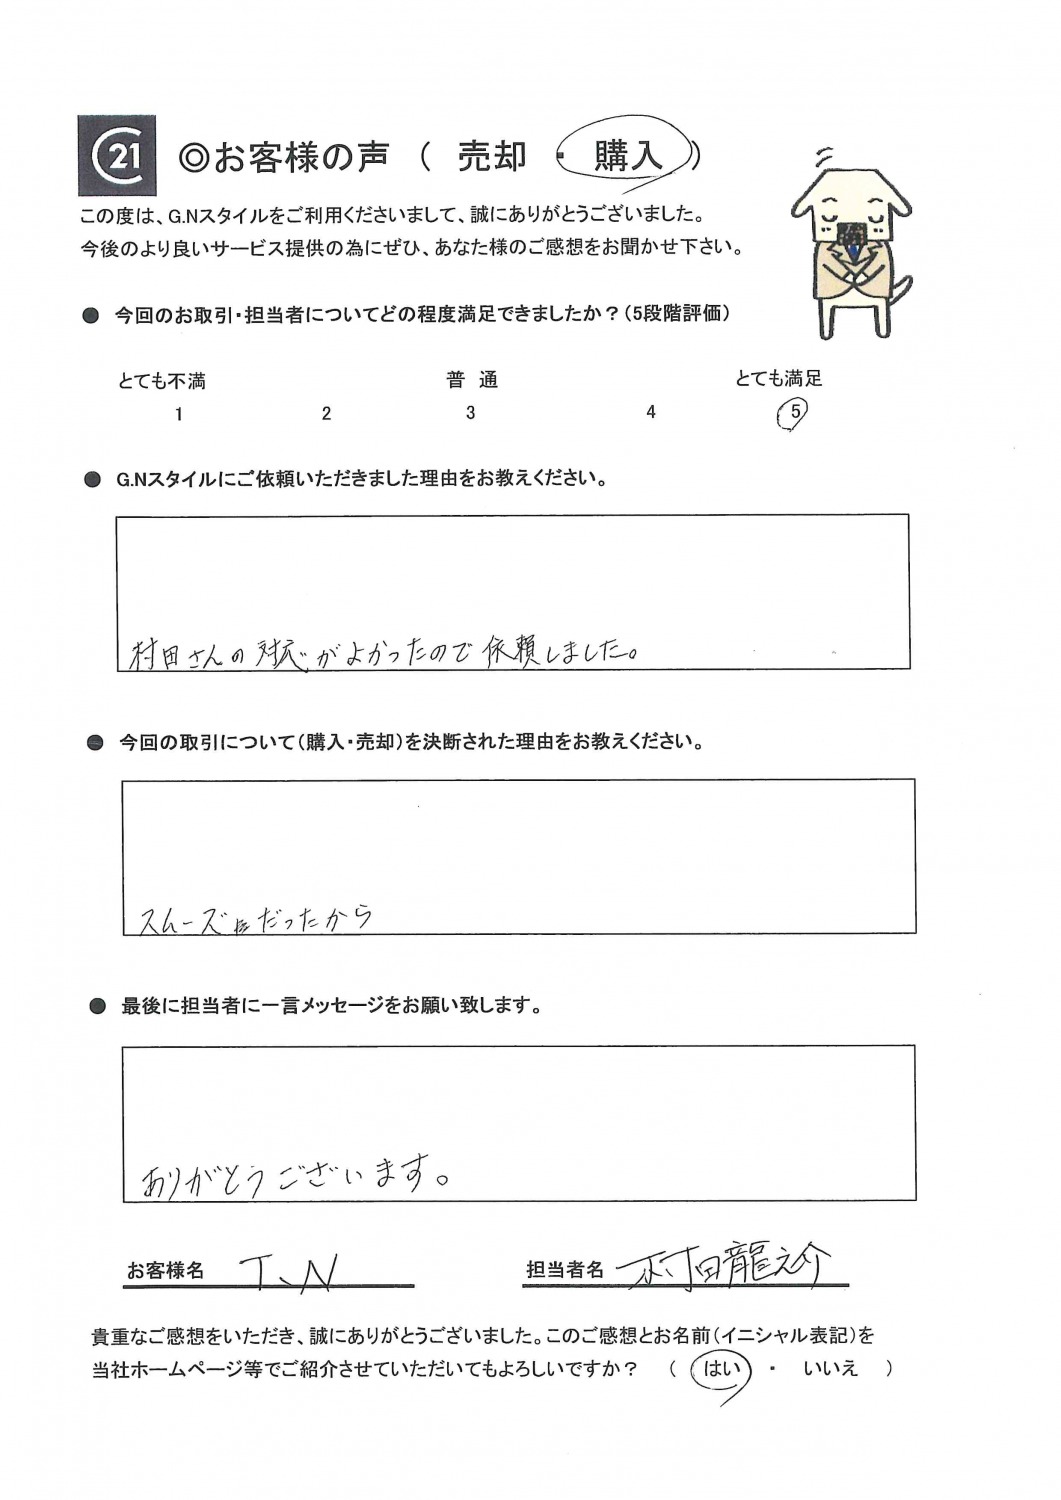 C21 ◎お客様の声 ( 売却 ・ 購入 )
この度は、G.Nスタイルをご利用くださいまして、誠にありがとうございました。
今後のより良いサービス提供の為にぜひ、あなた様のご感想をお聞かせ下さい。
● 今回のお取引・担当者についてどの程度満足できましたか?(5段階評価)
とても不満 普 通 とても満足
1 2 3 4 5
● G.Nスタイルにご依頼いただきました理由をお教えください。
村田さんの対応がよかったので依頼しました。
● 今回の取引について(購入・売却)を決断された理由をお教えください。
スムーズだったから
● 最後に担当者に一言メッセージをお願い致します。
ありがとうございます。
お客様名 T、N 担当者名 村田龍之介
貴重なご感想をいただき、誠にありがとうございました。このご感想とお名前(イニシャル表記)を
当社ホームページ等でご紹介させていただいてもよろしいですか? ( はい ・ いいえ )